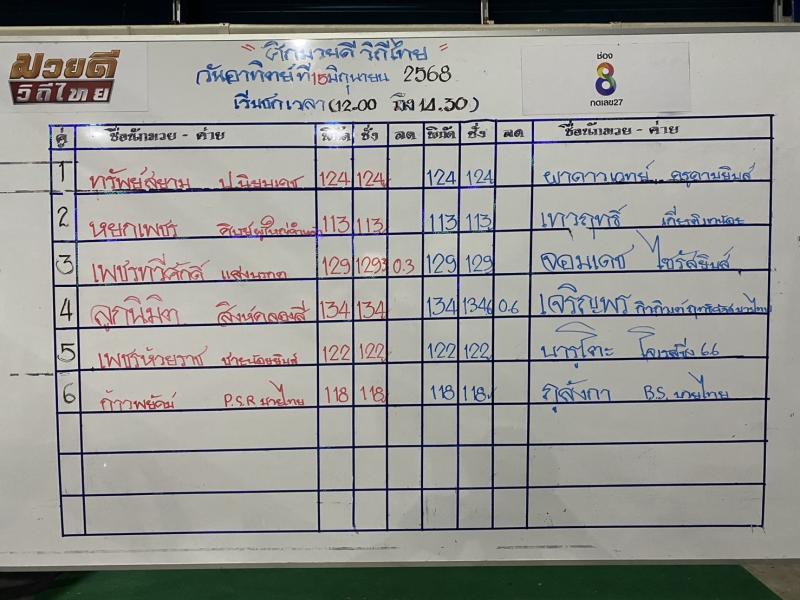 มวยดี
วิถีไทย
" ศึกมวยดี วิถีไทย "
วันอาทิตย์ที่ 15 มิถุนายน 2568
เริ่มชกเวลา (12.00 ถึง 14.30)
ช่อง
8
กดเลข27
คู่ ชื่อนักมวย - ค่าย พิกัด ชั่ง ลด พิกัด ชั่ง ลด ชื่อนักมวย - ค่าย
1 ทรัพย์สยาม ป.นิยมเดช 124 124 124 124 ผาดาวเวทย์ ครูดามยิมส์
2 หยกเพชร 113 113 113 113 เทวฤทธิ์
3 เพชรทวีศักดิ์ แสงมรกต 129 1293 0.3 129 129 จอมเดช ไซรัสยิมส์
4 ลูกนิมิต สิงห์คลองสี่ 134 134 134 1346 0.6 เจริญพร
5 เพชรห้วยราช ชายน้อยยิมส์ 122 122 122 122 นารูโตะ 66
6 ก้าวพยัคฆ์ P.S.R มวยไทย 118 118 118 118 ภูลังกา B.S. มวยไทย